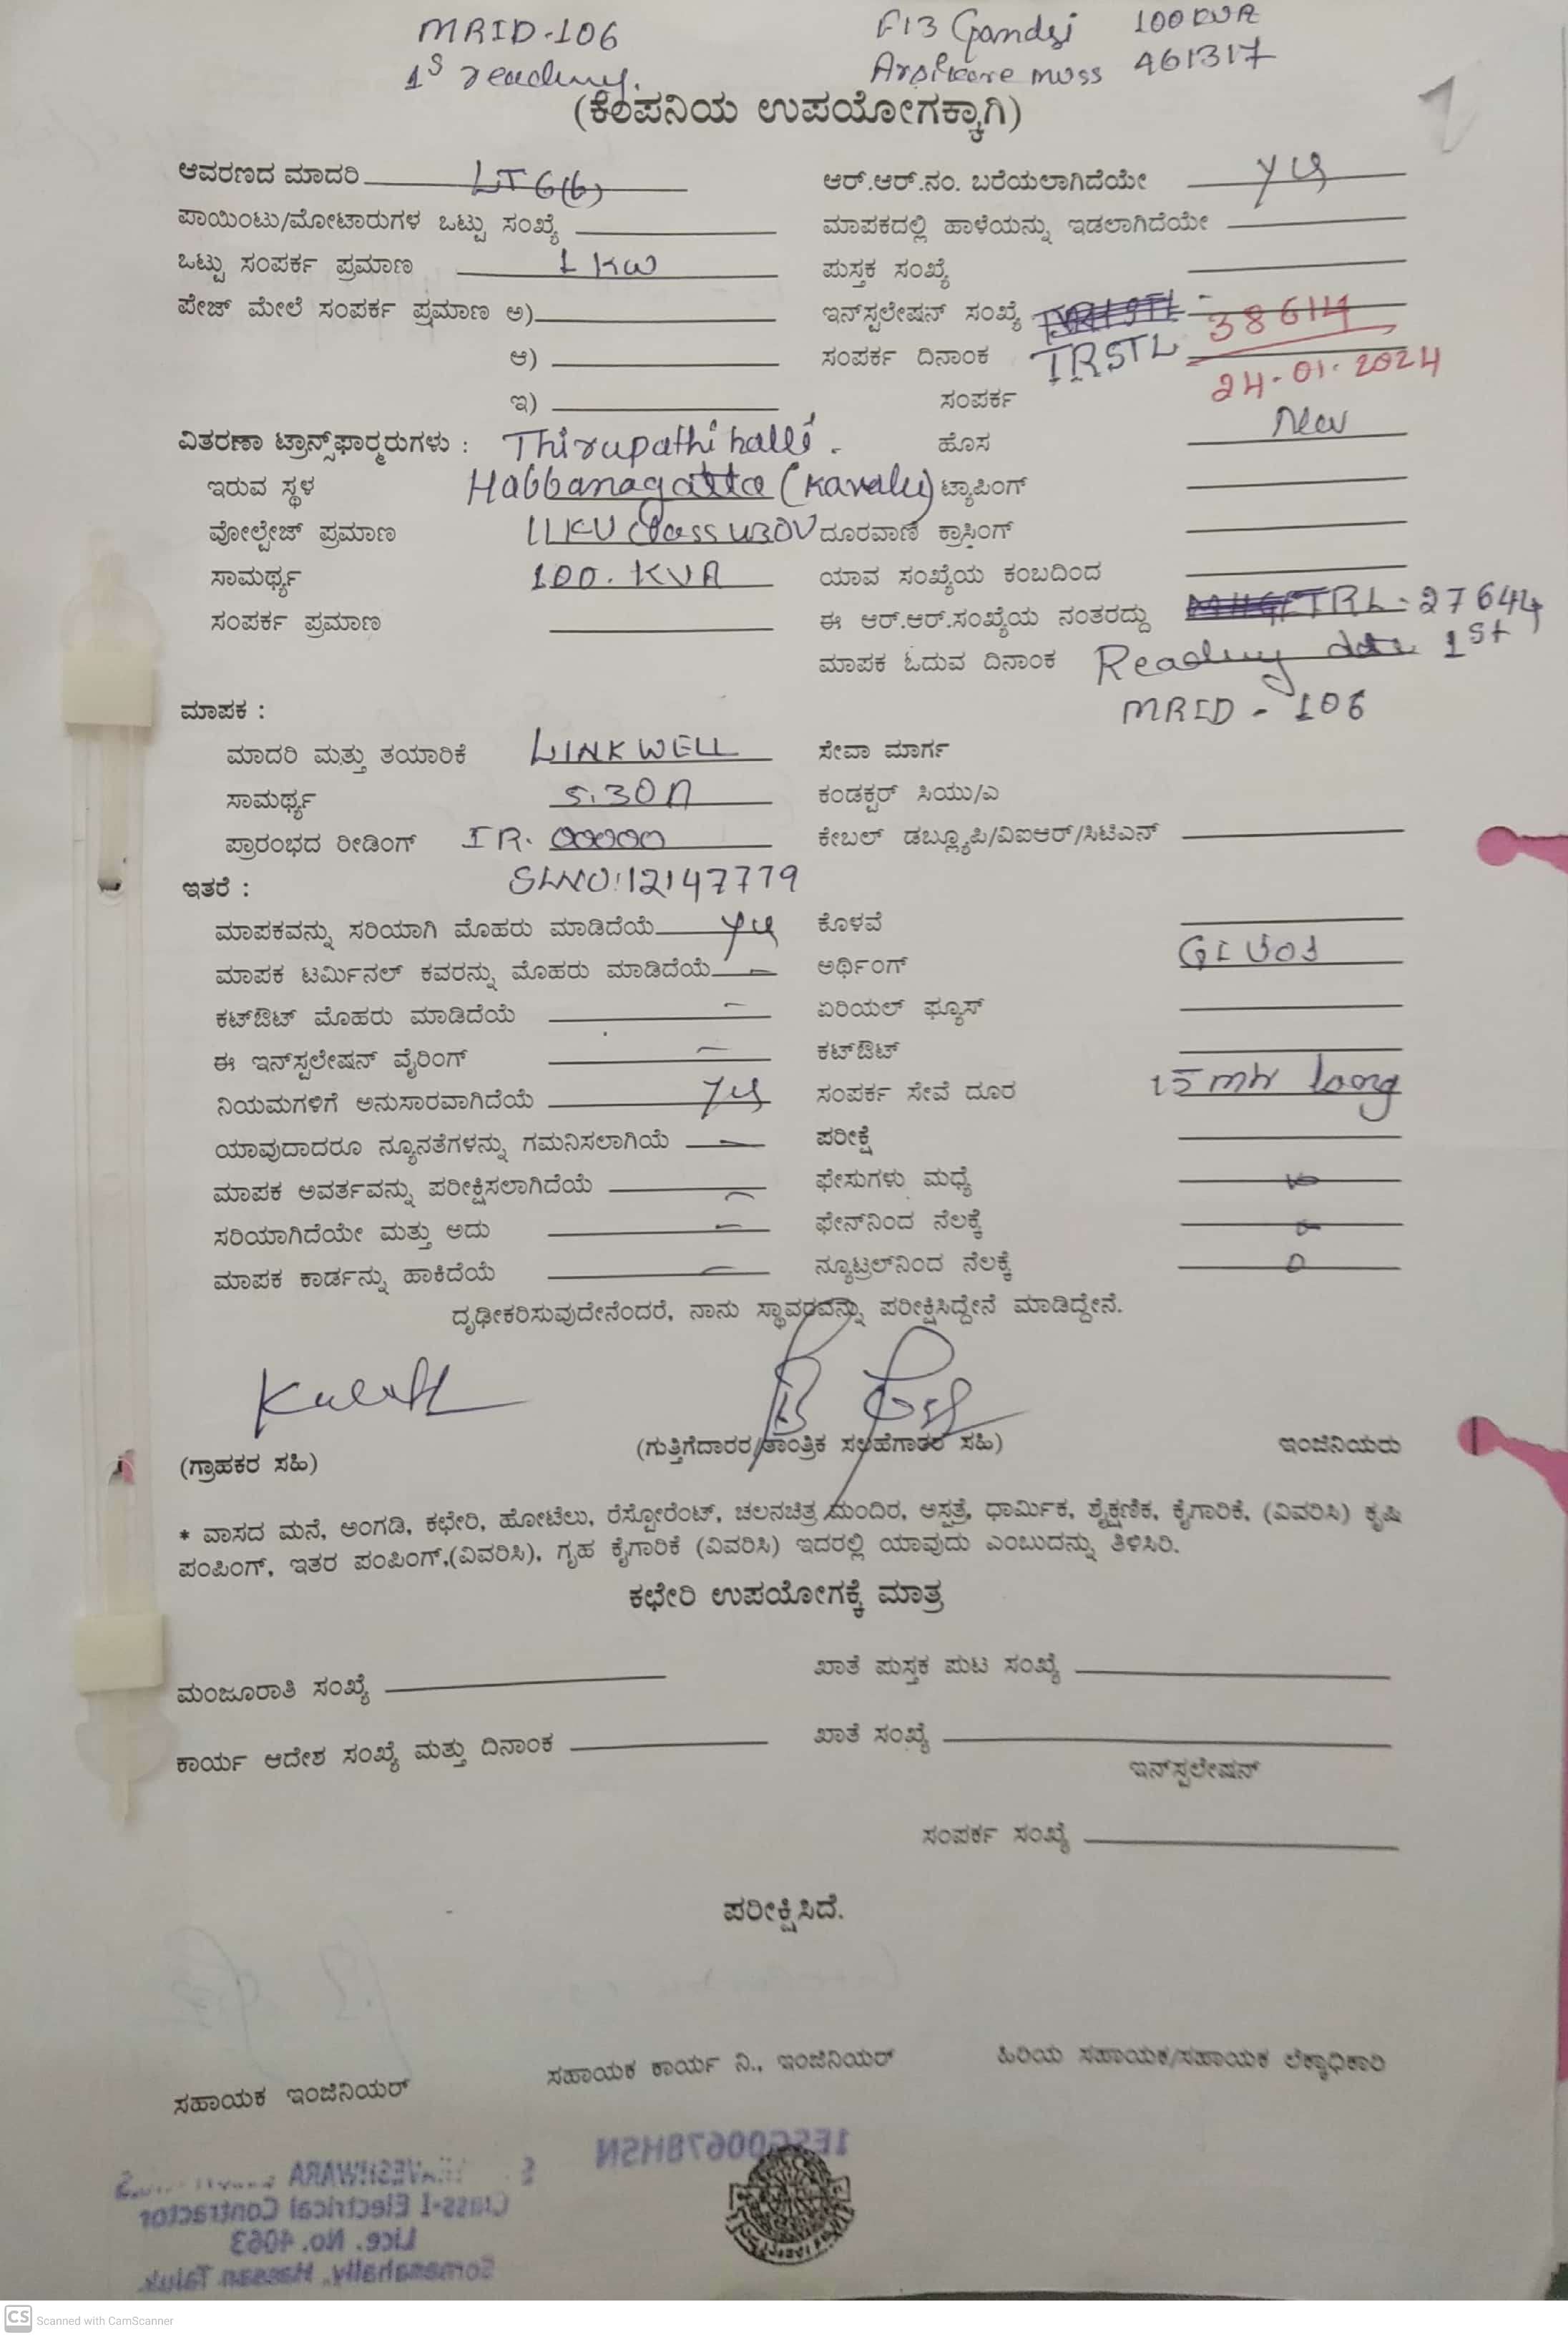 MRID-106 F13 Gandsi 100 KVA
1S reading. Arsikere muss 461317
(ಕಂಪನಿಯ ಉಪಯೋಗಕ್ಕಾಗಿ)
ಆವರಣದ ಮಾದರಿ LT 6(b) ಆರ್.ಆರ್.ನಂ. ಬರೆಯಲಾಗಿದೆಯೇ yes
ಪಾಯಿಂಟು/ಮೋಟಾರುಗಳ ಒಟ್ಟು ಸಂಖ್ಯೆ ಮಾಪಕದಲ್ಲಿ ಹಾಳೆಯನ್ನು ಇಡಲಾಗಿದೆಯೇ
ಒಟ್ಟು ಸಂಪರ್ಕ ಪ್ರಮಾಣ 1 KW ಪುಸ್ತಕ ಸಂಖ್ಯೆ
ಪೇಜ್ ಮೇಲೆ ಸಂಪರ್ಕ ಪ್ರಮಾಣ ಅ) ಇನ್‌ಸ್ಪಲೇಷನ್ ಸಂಖ್ಯೆ 38614
ಆ) ಸಂಪರ್ಕ ದಿನಾಂಕ TRSTL 24-01-2024
ಇ) ಸಂಪರ್ಕ
ವಿತರಣಾ ಟ್ರಾನ್ಸ್‌ಫಾರ್ಮರುಗಳು : Thirupathihalli. ಹೊಸ New
ಇರುವ ಸ್ಥಳ Habbanagatta (Kavalu) ಟ್ಯಾಪಿಂಗ್
ವೋಲ್ಟೇಜ್ ಪ್ರಮಾಣ 11KV Class 430V ದೂರವಾಣಿ ಕ್ರಾಸಿಂಗ್
ಸಾಮರ್ಥ್ಯ 100. KVA ಯಾವ ಸಂಖ್ಯೆಯ ಕಂಬದಿಂದ
ಸಂಪರ್ಕ ಪ್ರಮಾಣ ಈ ಆರ್.ಆರ್.ಸಂಖ್ಯೆಯ ನಂತರದ್ದು TRL-27644
ಮಾಪಕ ಓದುವ ದಿನಾಂಕ Reading date 1st
MRID - 106
ಮಾಪಕ :
ಮಾದರಿ ಮತ್ತು ತಯಾರಿಕೆ LINKWELL ಸೇವಾ ಮಾರ್ಗ
ಸಾಮರ್ಥ್ಯ 5.30A ಕಂಡಕ್ಟರ್ ಸಿಯು/ಎ
ಪ್ರಾರಂಭದ ರೀಡಿಂಗ್ IR. 00000 ಕೇಬಲ್ ಡಬ್ಲ್ಯೂಪಿ/ವಿಐಆರ್/ಸಿಟಿಎನ್
ಇತರೆ : SLNO:12147779
ಮಾಪಕವನ್ನು ಸರಿಯಾಗಿ ಮೊಹರು ಮಾಡಿದೆಯೆ yes ಕೊಳವೆ
ಮಾಪಕ ಟರ್ಮಿನಲ್ ಕವರನ್ನು ಮೊಹರು ಮಾಡಿದೆಯೆ ಅರ್ಥಿಂಗ್
ಕಟ್‌ಔಟ್ ಮೊಹರು ಮಾಡಿದೆಯೆ ಏರಿಯಲ್ ಫ್ಯೂಸ್
ಈ ಇನ್‌ಸ್ಪಲೇಷನ್ ವೈರಿಂಗ್ ಕಟ್‌ಔಟ್
ನಿಯಮಗಳಿಗೆ ಅನುಸಾರವಾಗಿದೆಯೆ yes ಸಂಪರ್ಕ ಸೇವೆ ದೂರ 15 mtr long
ಯಾವುದಾದರೂ ನ್ಯೂನತೆಗಳನ್ನು ಗಮನಿಸಲಾಗಿಯೆ ಪರೀಕ್ಷೆ
ಮಾಪಕ ಅವರ್ತವನ್ನು ಪರೀಕ್ಷಿಸಲಾಗಿದೆಯೆ ಫೇಸುಗಳು ಮಧ್ಯೆ
ಸರಿಯಾಗಿದೆಯೇ ಮತ್ತು ಅದು ಫೇಸ್‌ನಿಂದ ನೆಲಕ್ಕೆ
ಮಾಪಕ ಕಾರ್ಡನ್ನು ಹಾಕಿದೆಯೆ ನ್ಯೂಟ್ರಲ್‌ನಿಂದ ನೆಲಕ್ಕೆ
ದೃಢೀಕರಿಸುವುದೇನೆಂದರೆ, ನಾನು ಸ್ಥಾವರವನ್ನು ಪರೀಕ್ಷಿಸಿದ್ದೇನೆ ಮಾಡಿದ್ದೇನೆ.
(ಗ್ರಾಹಕರ ಸಹಿ) (ಗುತ್ತಿಗೆದಾರರ/ತಾಂತ್ರಿಕ ಸಲಹೆಗಾರರ ಸಹಿ) ಇಂಜಿನಿಯರು
* ವಾಸದ ಮನೆ, ಅಂಗಡಿ, ಕಛೇರಿ, ಹೋಟೆಲು, ರೆಸ್ಟೋರೆಂಟ್, ಚಲನಚಿತ್ರ ಮಂದಿರ, ಅಸ್ಪತ್ರೆ, ಧಾರ್ಮಿಕ, ಶೈಕ್ಷಣಿಕ, ಕೈಗಾರಿಕೆ, (ವಿವರಿಸಿ) ಕೃಷಿ
ಪಂಪಿಂಗ್, ಇತರ ಪಂಪಿಂಗ್,(ವಿವರಿಸಿ), ಗೃಹ ಕೈಗಾರಿಕೆ (ವಿವರಿಸಿ) ಇದರಲ್ಲಿ ಯಾವುದು ಎಂಬುದನ್ನು ತಿಳಿಸಿರಿ.
ಕಛೇರಿ ಉಪಯೋಗಕ್ಕೆ ಮಾತ್ರ
ಮಂಜೂರಾತಿ ಸಂಖ್ಯೆ ಖಾತೆ ಪುಸ್ತಕ ಪುಟ ಸಂಖ್ಯೆ
ಕಾರ್ಯ ಆದೇಶ ಸಂಖ್ಯೆ ಮತ್ತು ದಿನಾಂಕ ಖಾತೆ ಸಂಖ್ಯೆ
ಇನ್‌ಸ್ಪಲೇಷನ್
ಸಂಪರ್ಕ ಸಂಖ್ಯೆ
ಪರೀಕ್ಷಿಸಿದೆ.
ಸಹಾಯಕ ಇಂಜಿನಿಯರ್ ಸಹಾಯಕ ಕಾರ್ಯ ನಿ., ಇಂಜಿನಿಯರ್ ಹಿರಿಯ ಸಹಾಯಕ/ಸಹಾಯಕ ಲೆಕ್ಕಾಧಿಕಾರಿ
Class-I Electrical Contractor
Lice. No. 4063
Hassan Taluk.
CS Scanned with CamScanner